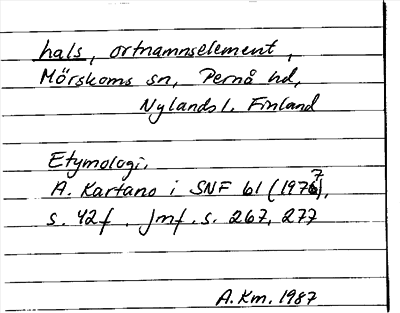 hals, ortnamnselement,
Mörskoms sn, Pernå hd,
Nylands l. Finland
Etymologi.
A. Kartano i SNF 61 (1977),
s. 42f. Jmf. s. 267, 277
A.Km. 1987